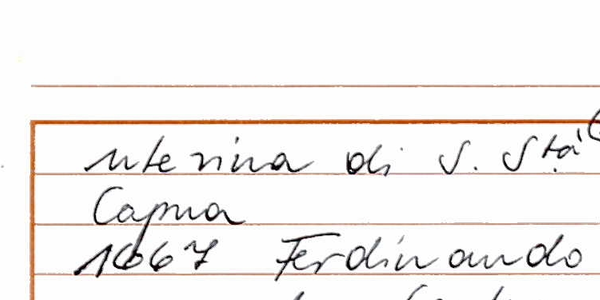 uterina di S. Stá
Capua
1667 Ferdinando